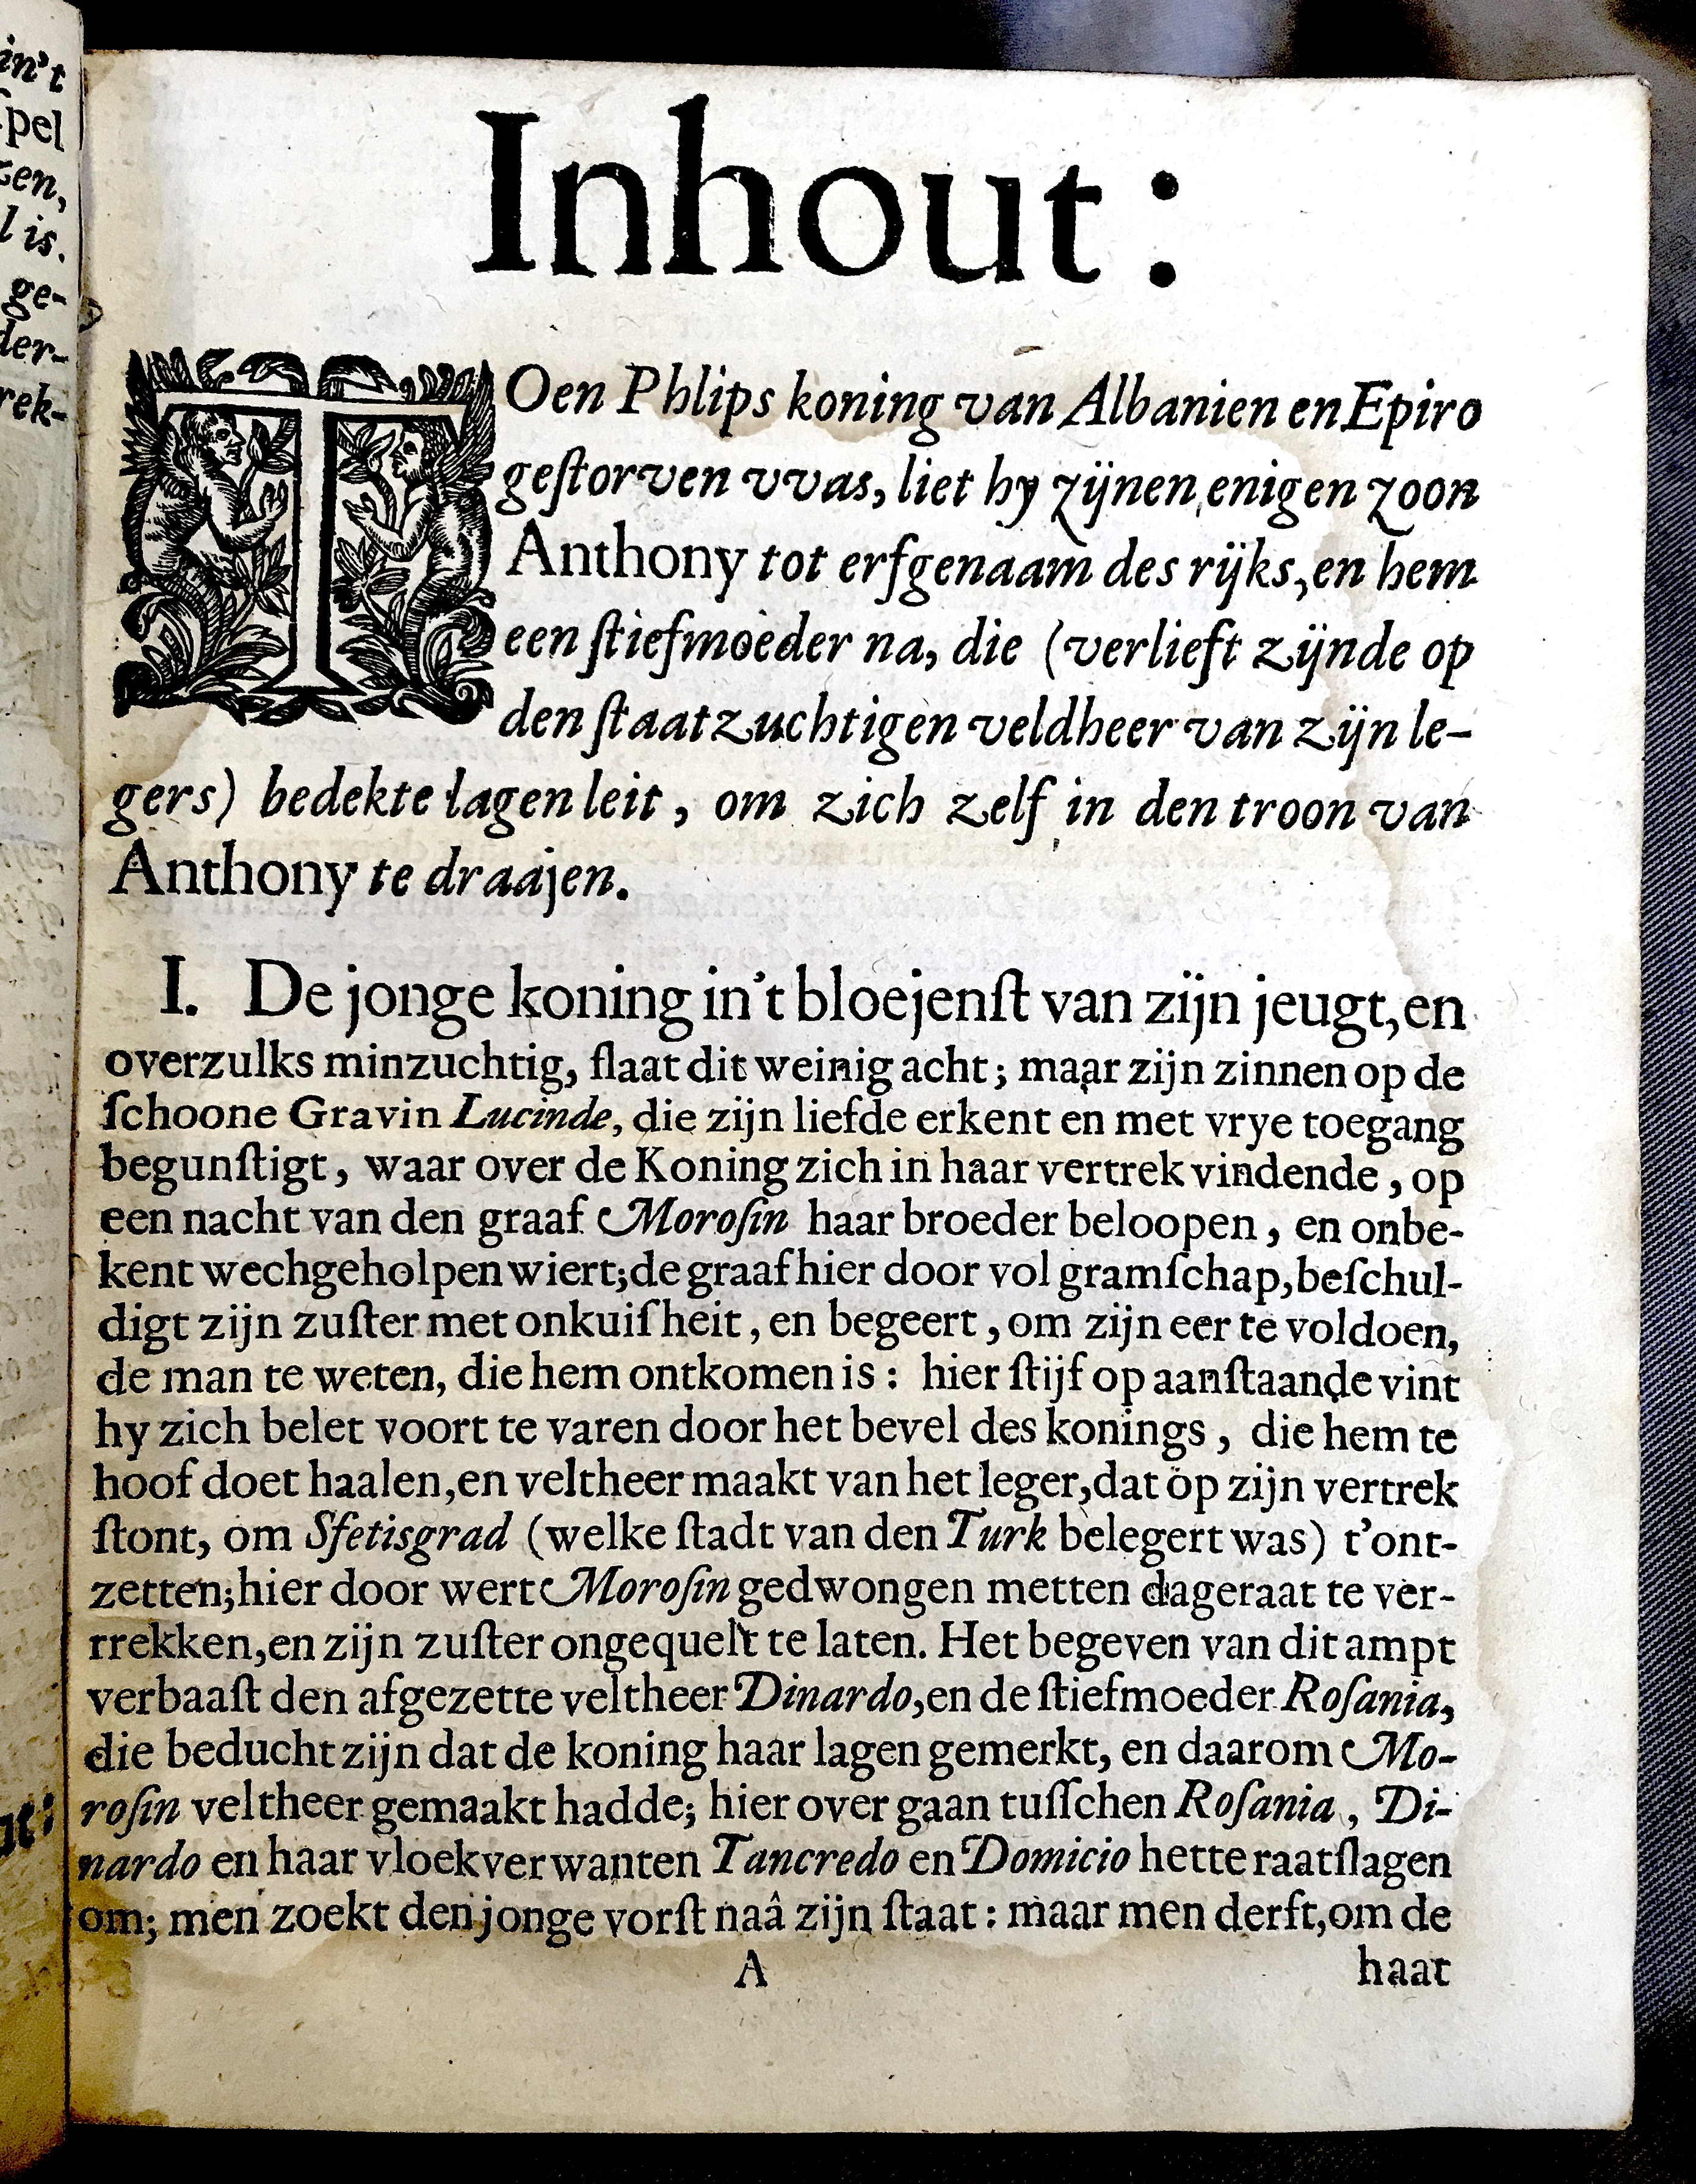 in't
spel
zen,
l is.
ge-
der-
rek-
Inhout:
TOen Phlips koning van Albanien en Epiro
geſtorven vvas, liet hy zijnen enigen zoon
Anthony tot erfgenaam des rijks, en hem
een ſtiefmoeder na, die (verlieft zijnde op
den ſtaatzuchtigen veldheer van zijn le-
gers) bedekte lagen leit, om zich zelf in den troon van
Anthony te draajen.
I. De jonge koning in't bloejenſt van zijn jeugt, en
overzulks minzuchtig, ſlaat dit weinig acht; maar zijn zinnen op de
ſchoone Gravin Lucinde, die zijn liefde erkent en met vrye toegang
begunſtigt, waar over de Koning zich in haar vertrek vindende, op
een nacht van den graaf Moroſin haar broeder beloopen, en onbe-
kent wechgeholpen wiert; de graaf hier door vol gramſchap, beſchul-
digt zijn zuſter met onkuiſheit, en begeert, om zijn eer te voldoen,
de man te weten, die hem ontkomen is: hier ſtijf op aanſtaande vint
hy zich belet voort te varen door het bevel des konings, die hem te
hoof doet haalen, en veltheer maakt van het leger, dat op zijn vertrek
ſtont, om Sfetisgrad (welke ſtadt van den Turk belegert was) t'ont-
zetten; hier door wert Moroſin gedwongen metten dageraat te ver-
rrekken, en zijn zuſter ongequelt te laten. Het begeven van dit ampt
verbaaſt den afgezette veltheer Dinardo, en de ſtiefmoeder Roſania,
die beducht zijn dat de koning haar lagen gemerkt, en daarom Mo-
roſin veltheer gemaakt hadde; hier over gaan tuſſchen Roſania, Di-
nardo en haar vloekverwanten Tancredo en Domicio hette raatſlagen
om; men zoekt den jonge vorſt naâ zijn ſtaat: maar men derft, om de
A haat